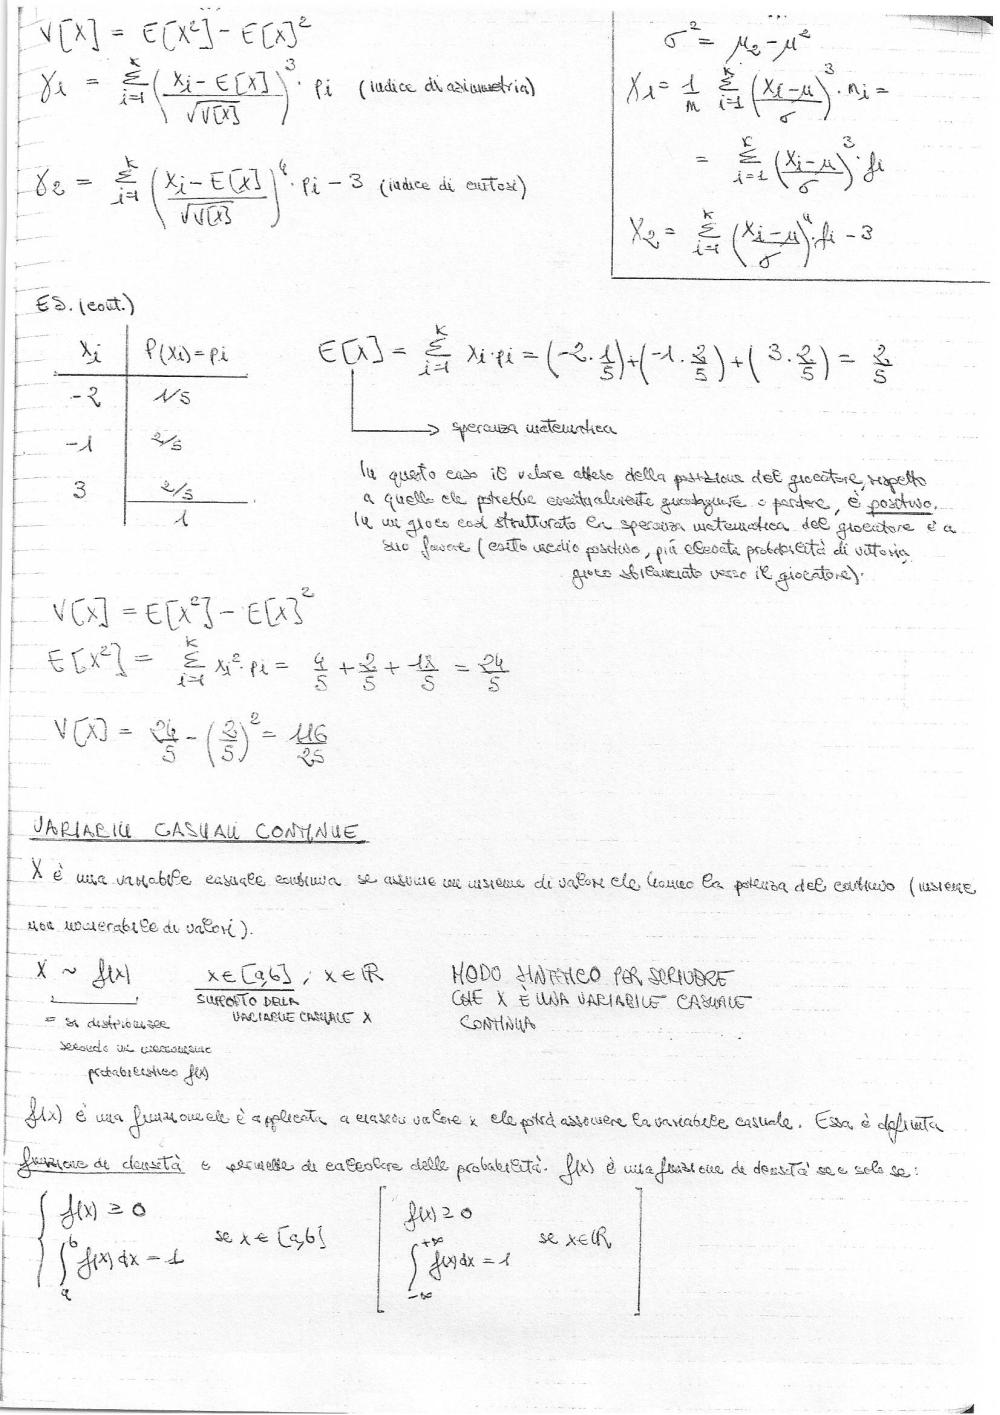 V[X] = E[X²] - E[X]²
γ1 = Σ_{i=1}^{k} ((xi - E[X])/√V[X])³ · pi (indice di asimmetria)
γ2 = Σ_{i=1}^{k} ((xi - E[X])/√V[X])⁴ · pi - 3 (indice di curtosi)
σ² = μ2 - μ²
γ1 = 1/n Σ_{i=1}^{k} ((xi - μ)/σ)³ · ni =
= Σ_{i=1}^{k} ((xi - μ)/σ)³ · fi
γ2 = Σ_{i=1}^{k} ((xi - μ)/σ)⁴ · fi - 3
ES. (cont.)
xi | P(xi) = pi
-2 | 1/5
-1 | 2/5
3 | 2/5
1
E[X] = Σ_{i=1}^{k} xi · pi = (-2 · 1/5) + (-1 · 2/5) + (3 · 2/5) = 2/5
speranza matematica
In questo caso il valore atteso della posizione del giocatore, rispetto
a quello che potrebbe eventualmente guadagnare o perdere, è positivo.
In un gioco così strutturato la speranza matematica del giocatore è a
suo favore (esito medio positivo, più elevata probabilità di vittoria,
gioco sbilanciato verso il giocatore).
V[X] = E[X²] - E[X]²
E[X²] = Σ_{i=1}^{k} xi² · pi = 4/5 + 2/5 + 18/5 = 24/5
V[X] = 24/5 - (2/5)² = 116/25
VARIABILI CASUALI CONTINUE
X è una variabile casuale continua se assume un insieme di valori che hanno la potenza del continuo (insieme
non numerabile di valori).
X ~ f(x) x ∈ [a,b] ; x ∈ ℝ
= si distribuisce
secondo un meccanismo
probabilistico f(x)
SUPPORTO DELLA
VARIABILE CASUALE X
MODO SINTETICO PER SCRIVERE
CHE X È UNA VARIABILE CASUALE
CONTINUA
f(x) è una funzione che è applicata a ciascun valore x che potrà assumere la variabile casuale. Essa è definita
funzione di densità e permette di calcolare delle probabilità. f(x) è una funzione di densità se e solo se:
{ f(x) ≥ 0
∫_a^b f(x) dx = 1 se x ∈ [a,b]
[ f(x) ≥ 0
∫_{-∞}^{+∞} f(x) dx = 1 se x ∈ ℝ ]